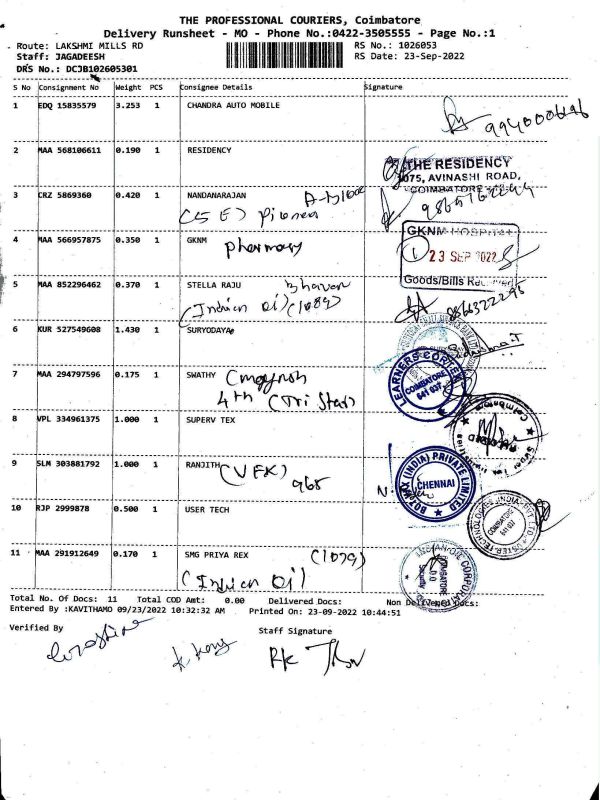 THE PROFESSIONAL COURIERS, Coimbatore
Delivery Runsheet - MO - Phone No.:0422-3505555 - Page No.:1
Route: LAKSHMI MILLS RD RS No.: 1026053
Staff: JAGADEESH RS Date: 23-Sep-2022
DRS No.: DCJB102605301
S No Consignment No Weight PCS Consignee Details Signature
1 EDQ 15835579 3.253 1 CHANDRA AUTO MOBILE
2 MAA 568106611 0.190 1 RESIDENCY
THE RESIDENCY
1075, AVINASHI ROAD,
COIMBATORE
3 CRZ 5869360 0.420 1 NANDANARAJAN
(5 E)
4 MAA 566957875 0.350 1 GKNM pharmacy
GKNM HOSPITAL
23 SEP 2022
Goods/Bills Received
5 MAA 852296462 0.370 1 STELLA RAJU
(Indian Oil) (1089)
6 KUR 527549608 1.430 1 SURYODAYA
LEARNERS CORNER
COIMBATORE
641 037
7 MAA 294797596 0.175 1 SWATHY
4th (Tri Star)
8 VPL 334961375 1.000 1 SUPERV TEX
9 SLM 303881792 1.000 1 RANJITH (VFK) 965
(INDIA) PRIVATE LIMITED
CHENNAI
10 RJP 2999878 0.500 1 USER TECH
COIMBATORE
641 037
11 MAA 291912649 0.170 1 SMG PRIYA REX (1079)
(Indian Oil)
Total No. Of Docs: 11 Total COD Amt: 0.00 Delivered Docs: Non Delivered Docs:
Entered By :KAVITHAMO 09/23/2022 10:32:32 AM Printed On: 23-09-2022 10:44:51
Verified By Staff Signature